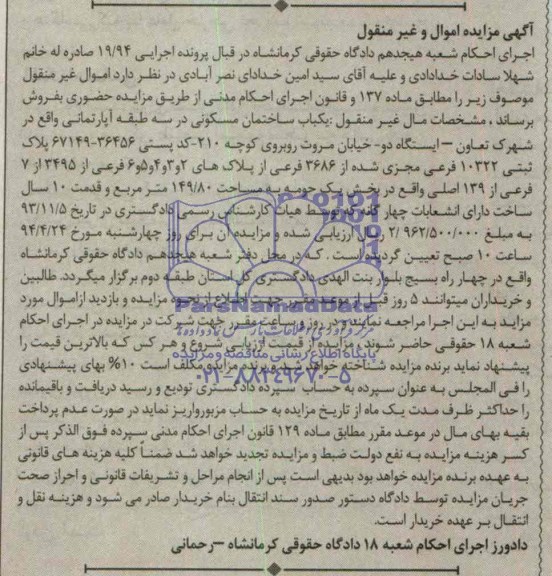 آگهی مزایده اموال و غیر منقول
اجرای احکام شعبه هیجدهم دادگاه حقوقی کرمانشاه در قبال پرونده اجرایی ۱۹/۹۴ صادره له خانم
شهلا سادات خدادادی و علیه آقای سید امین خدادای نصر آبادی در نظر دارد اموال غیر منقول
موصوف زیر را مطابق ماده ۱۳۷ و قانون اجرای احکام مدنی از طریق مزایده حضوری بفروش
برساند ، مشخصات مال غیر منقول :یکباب ساختمان مسکونی در سه طبقه آپارتمانی واقع در
شهرک تعاون – ایستگاه دو- خیابان مروت روبروی کوچه ۲۱۰-کد پستی ۳۶۴۵۶-۶۷۱۴۹ پلاک
ثبتی ۱۰۳۲۲ فرعی مجزی شده از ۳۶۸۶ فرعی از پلاک های ۲و۳و۴و۵و۶ فرعی از ۳۴۹۵ از ۷
فرعی از ۱۳۹ اصلی واقع در بخش یک حومه به مساحت ۱۴۹/۸۰ متر مربع و قدمت ۱۰ سال
ساخت دارای انشعابات چهار گانه که توسط هیات کارشناس رسمی دادگستری در تاریخ ۹۳/۱۱/۵
به مبلغ ۲/۹۶۲/۵۰۰/۰۰۰ ریال ارزیابی شده و مزایده آن برای روز چهارشنبه مورخ ۹۴/۴/۲۴
ساعت ۱۰ صبح تعیین گردیده است . که در محل دفتر شعبه هیجدهم دادگاه حقوقی کرمانشاه
واقع در چهار راه بسیج بلوار بنت الهدی دادگستری کل استان طبقه دوم برگزار میگردد. طالبین
و خریداران میتوانند ۵ روز قبل از موعد مقرر جهت اطلاع از نحوه مزایده و بازدید ازاموال مورد
مزاید به این اجرا مراجعه نمایند. در روز و ساعت مقرر جهت شرکت در مزایده در اجرای احکام
شعبه ۱۸ حقوقی حاضر شوند، مزایده از قیمت ارزیابی شروع و هر کس که بالاترین قیمت را
پیشنهاد نماید برنده مزایده شناخته خواهد شد و برنده مزایده مکلف است ۱۰% بهای پیشنهادی
را فی المجلس به عنوان سپرده به حساب سپرده دادگستری تودیع و رسید دریافت و باقیمانده
را حداکثر ظرف مدت یک ماه از تاریخ مزایده به حساب مزبورواریز نماید در صورت عدم پرداخت
بقیه بهای مال در موعد مقرر مطابق ماده ۱۲۹ قانون اجرای احکام مدنی سپرده فوق الذکر پس از
کسر هزینه مزایده به نفع دولت ضبط و مزایده تجدید خواهد شد ضمناً کلیه هزینه های قانونی
به عهده برنده مزایده خواهد بود بدیهی است پس از انجام مراحل و تشریفات قانونی و احراز صحت
جریان مزایده توسط دادگاه دستور صدور سند انتقال بنام خریدار صادر می شود و هزینه نقل و
انتقال بر عهده خریدار است.
دادورز اجرای احکام شعبه ۱۸ دادگاه حقوقی کرمانشاه –رحمانی
ParsNamadData
پایگاه اطلاع رسانی مناقصه و مزایده
۰۲۱-۸۸۳۴۹۶۷۰-۵